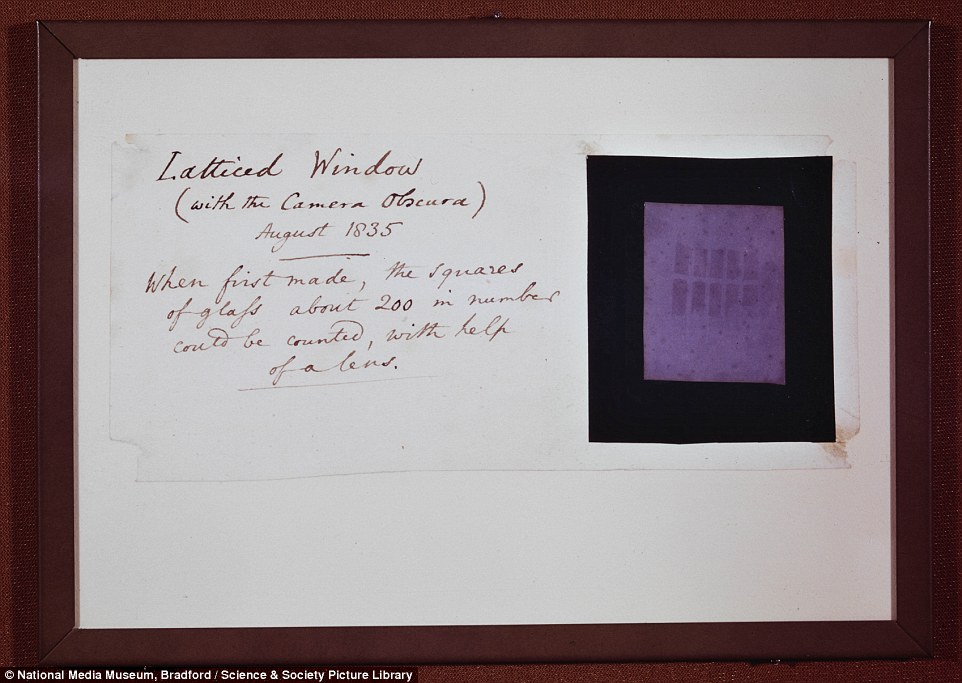 Latticed Window
(with the Camera Obscura)
August 1835
When first made, the squares
of glass about 200 in number
could be counted, with help
of a lens.
© National Media Museum, Bradford / Science & Society Picture Library